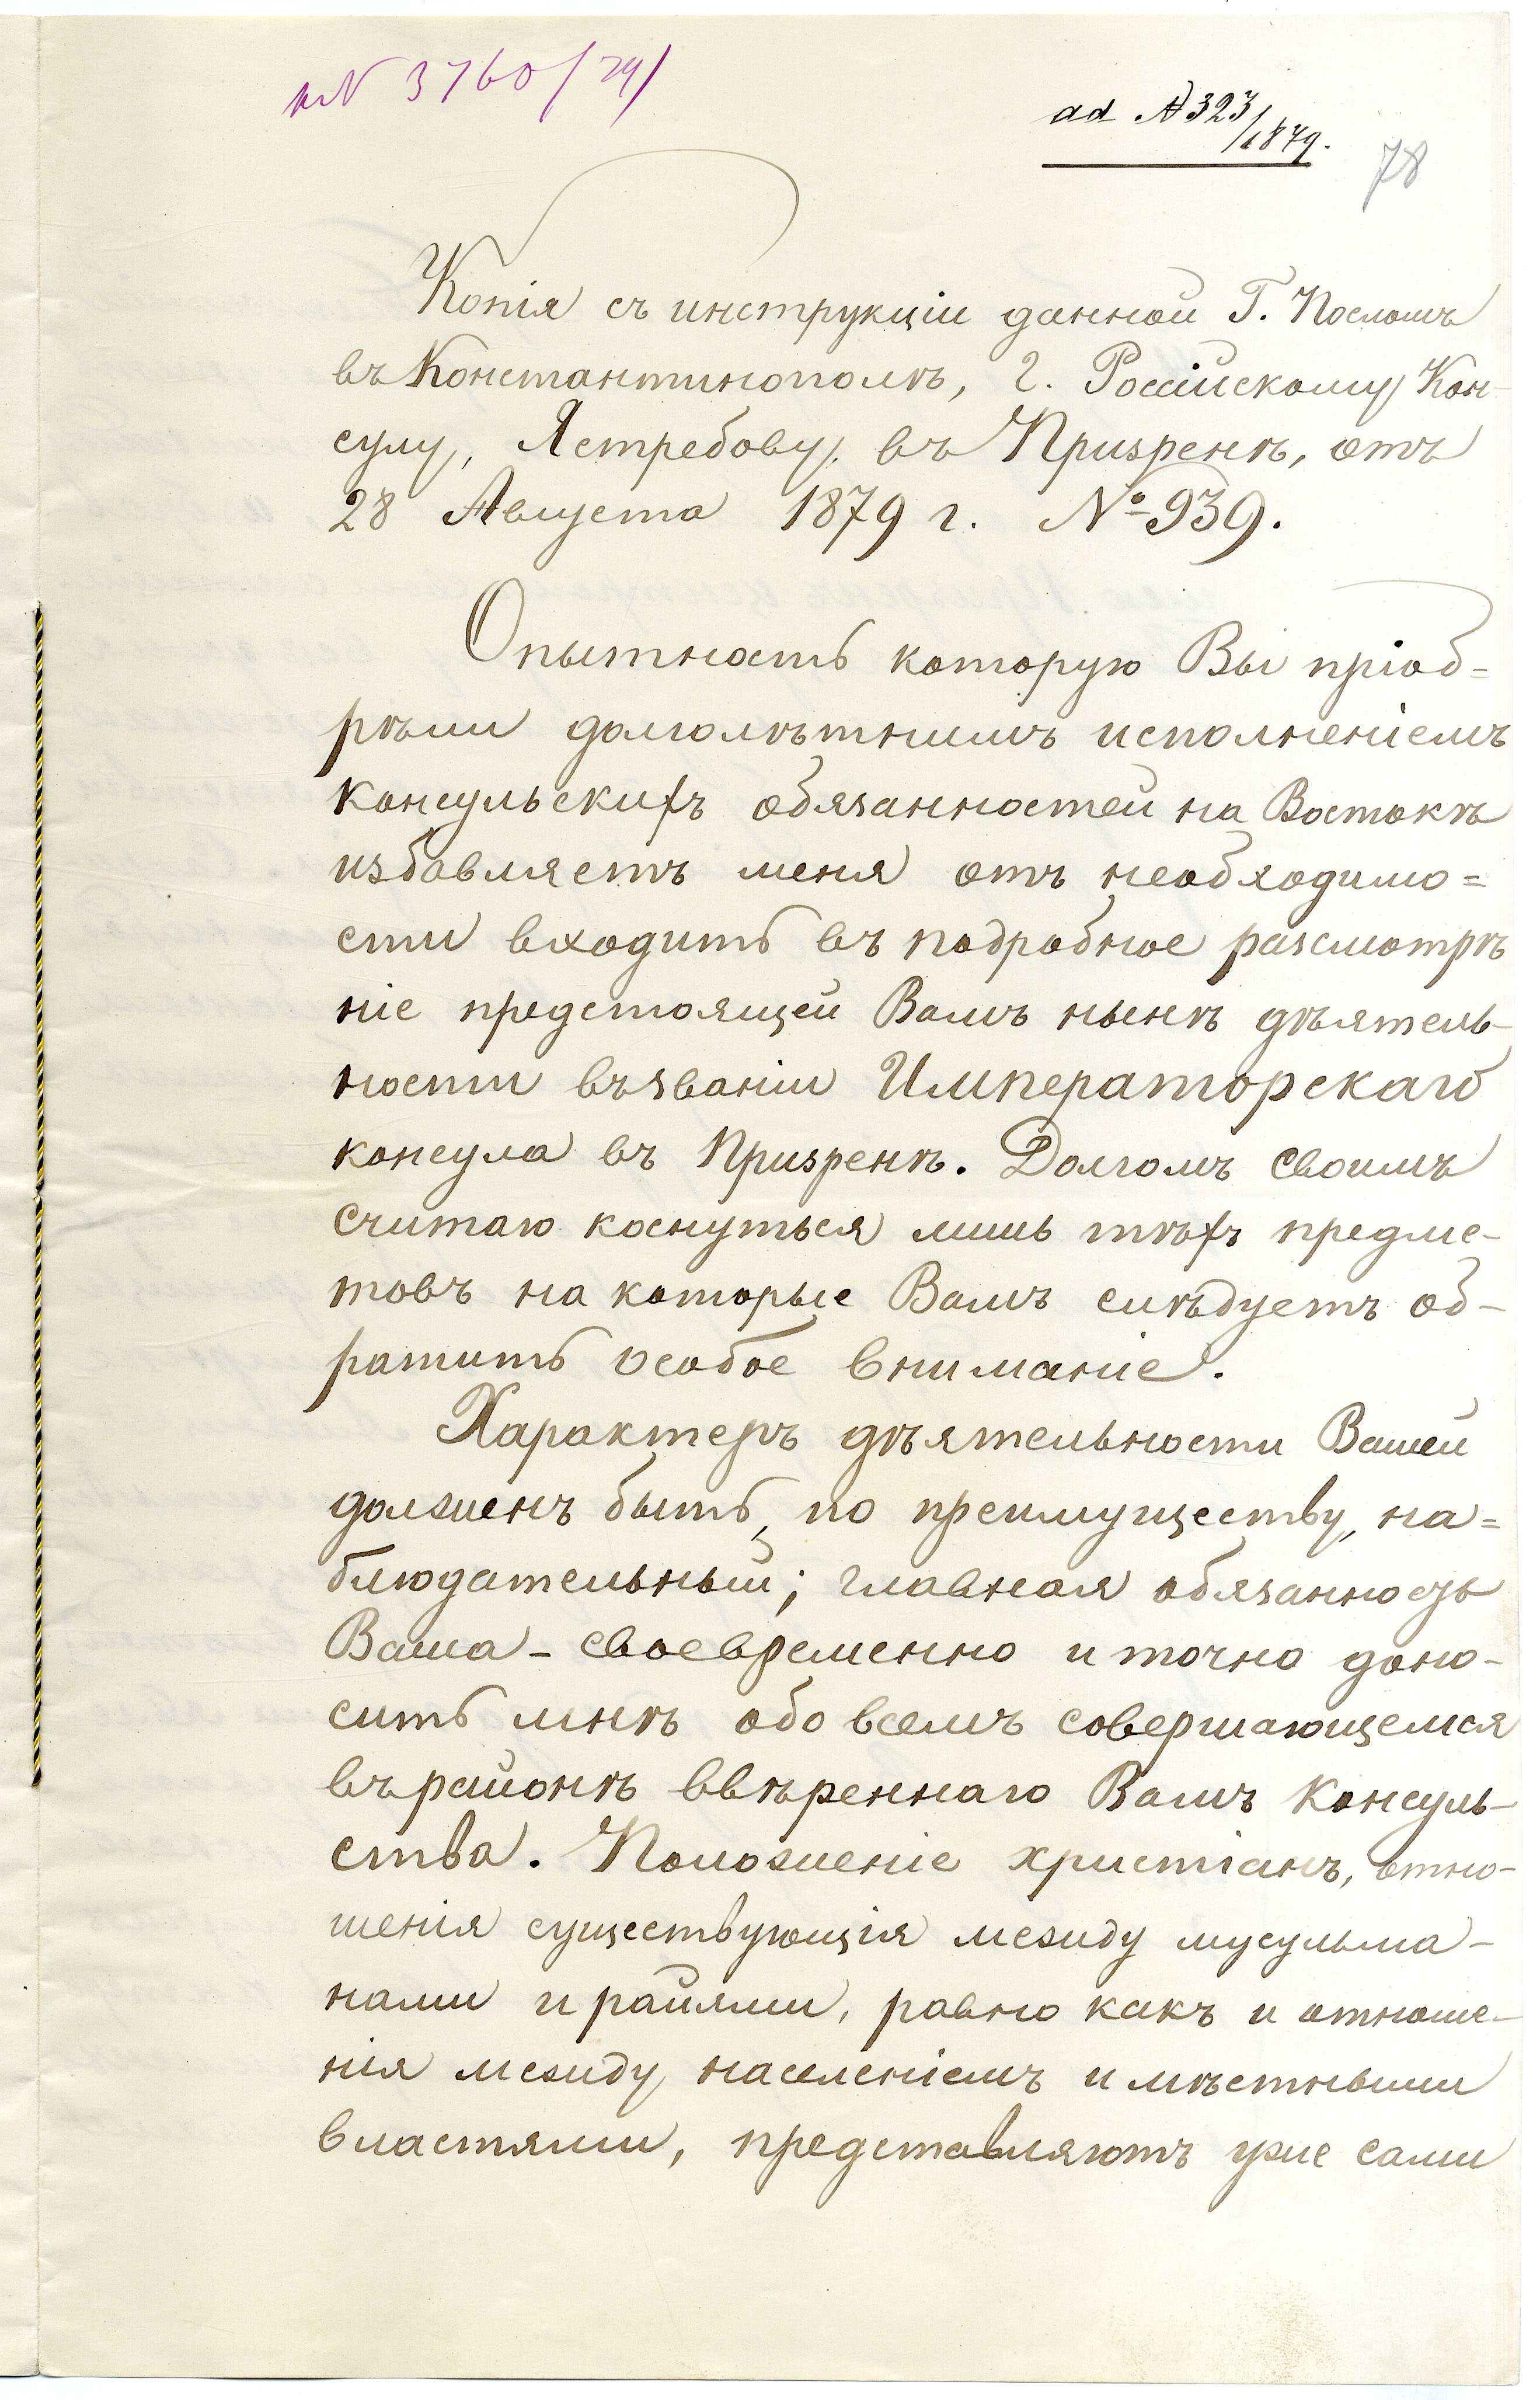 № 3760/79/
ad № 323/1879.
78
Копія съ инструкціи данной Г. Посломъ
въ Константинополѣ, г. Россійскому Кон-
сулу, Ястребову, въ Призренѣ, отъ
28 Августа 1879 г. № 939.
Опытность которую Вы пріоб=
рѣли долголѣтнимъ исполненіемъ
консульскихъ обязанностей на Востокѣ
избавляетъ меня отъ необходимо=
сти входить въ подробное разсмотрѣ
ніе предстоящей Вамъ нынѣ дѣятель-
ности въ званіи Императорскаго
консула въ Призренѣ. Долгомъ своимъ
считаю коснуться лишь тѣхъ предме-
товъ на которые Вамъ слѣдуетъ об-
ратить особое вниманіе.
Характеръ дѣятельности Вашей
долженъ быть, по преимуществу, на=
блюдательный; главная обязанность
Ваша - своевременно и точно доно-
сить мнѣ обо всемъ совершающемся
въ районѣ ввѣреннаго Вамъ Консуль-
ства. Положеніе христіанъ, отно-
шенія существующія между мусульма-
нами и райями, равно какъ и отноше-
нія между населеніемъ и мѣстными
властями, представляютъ уже сами